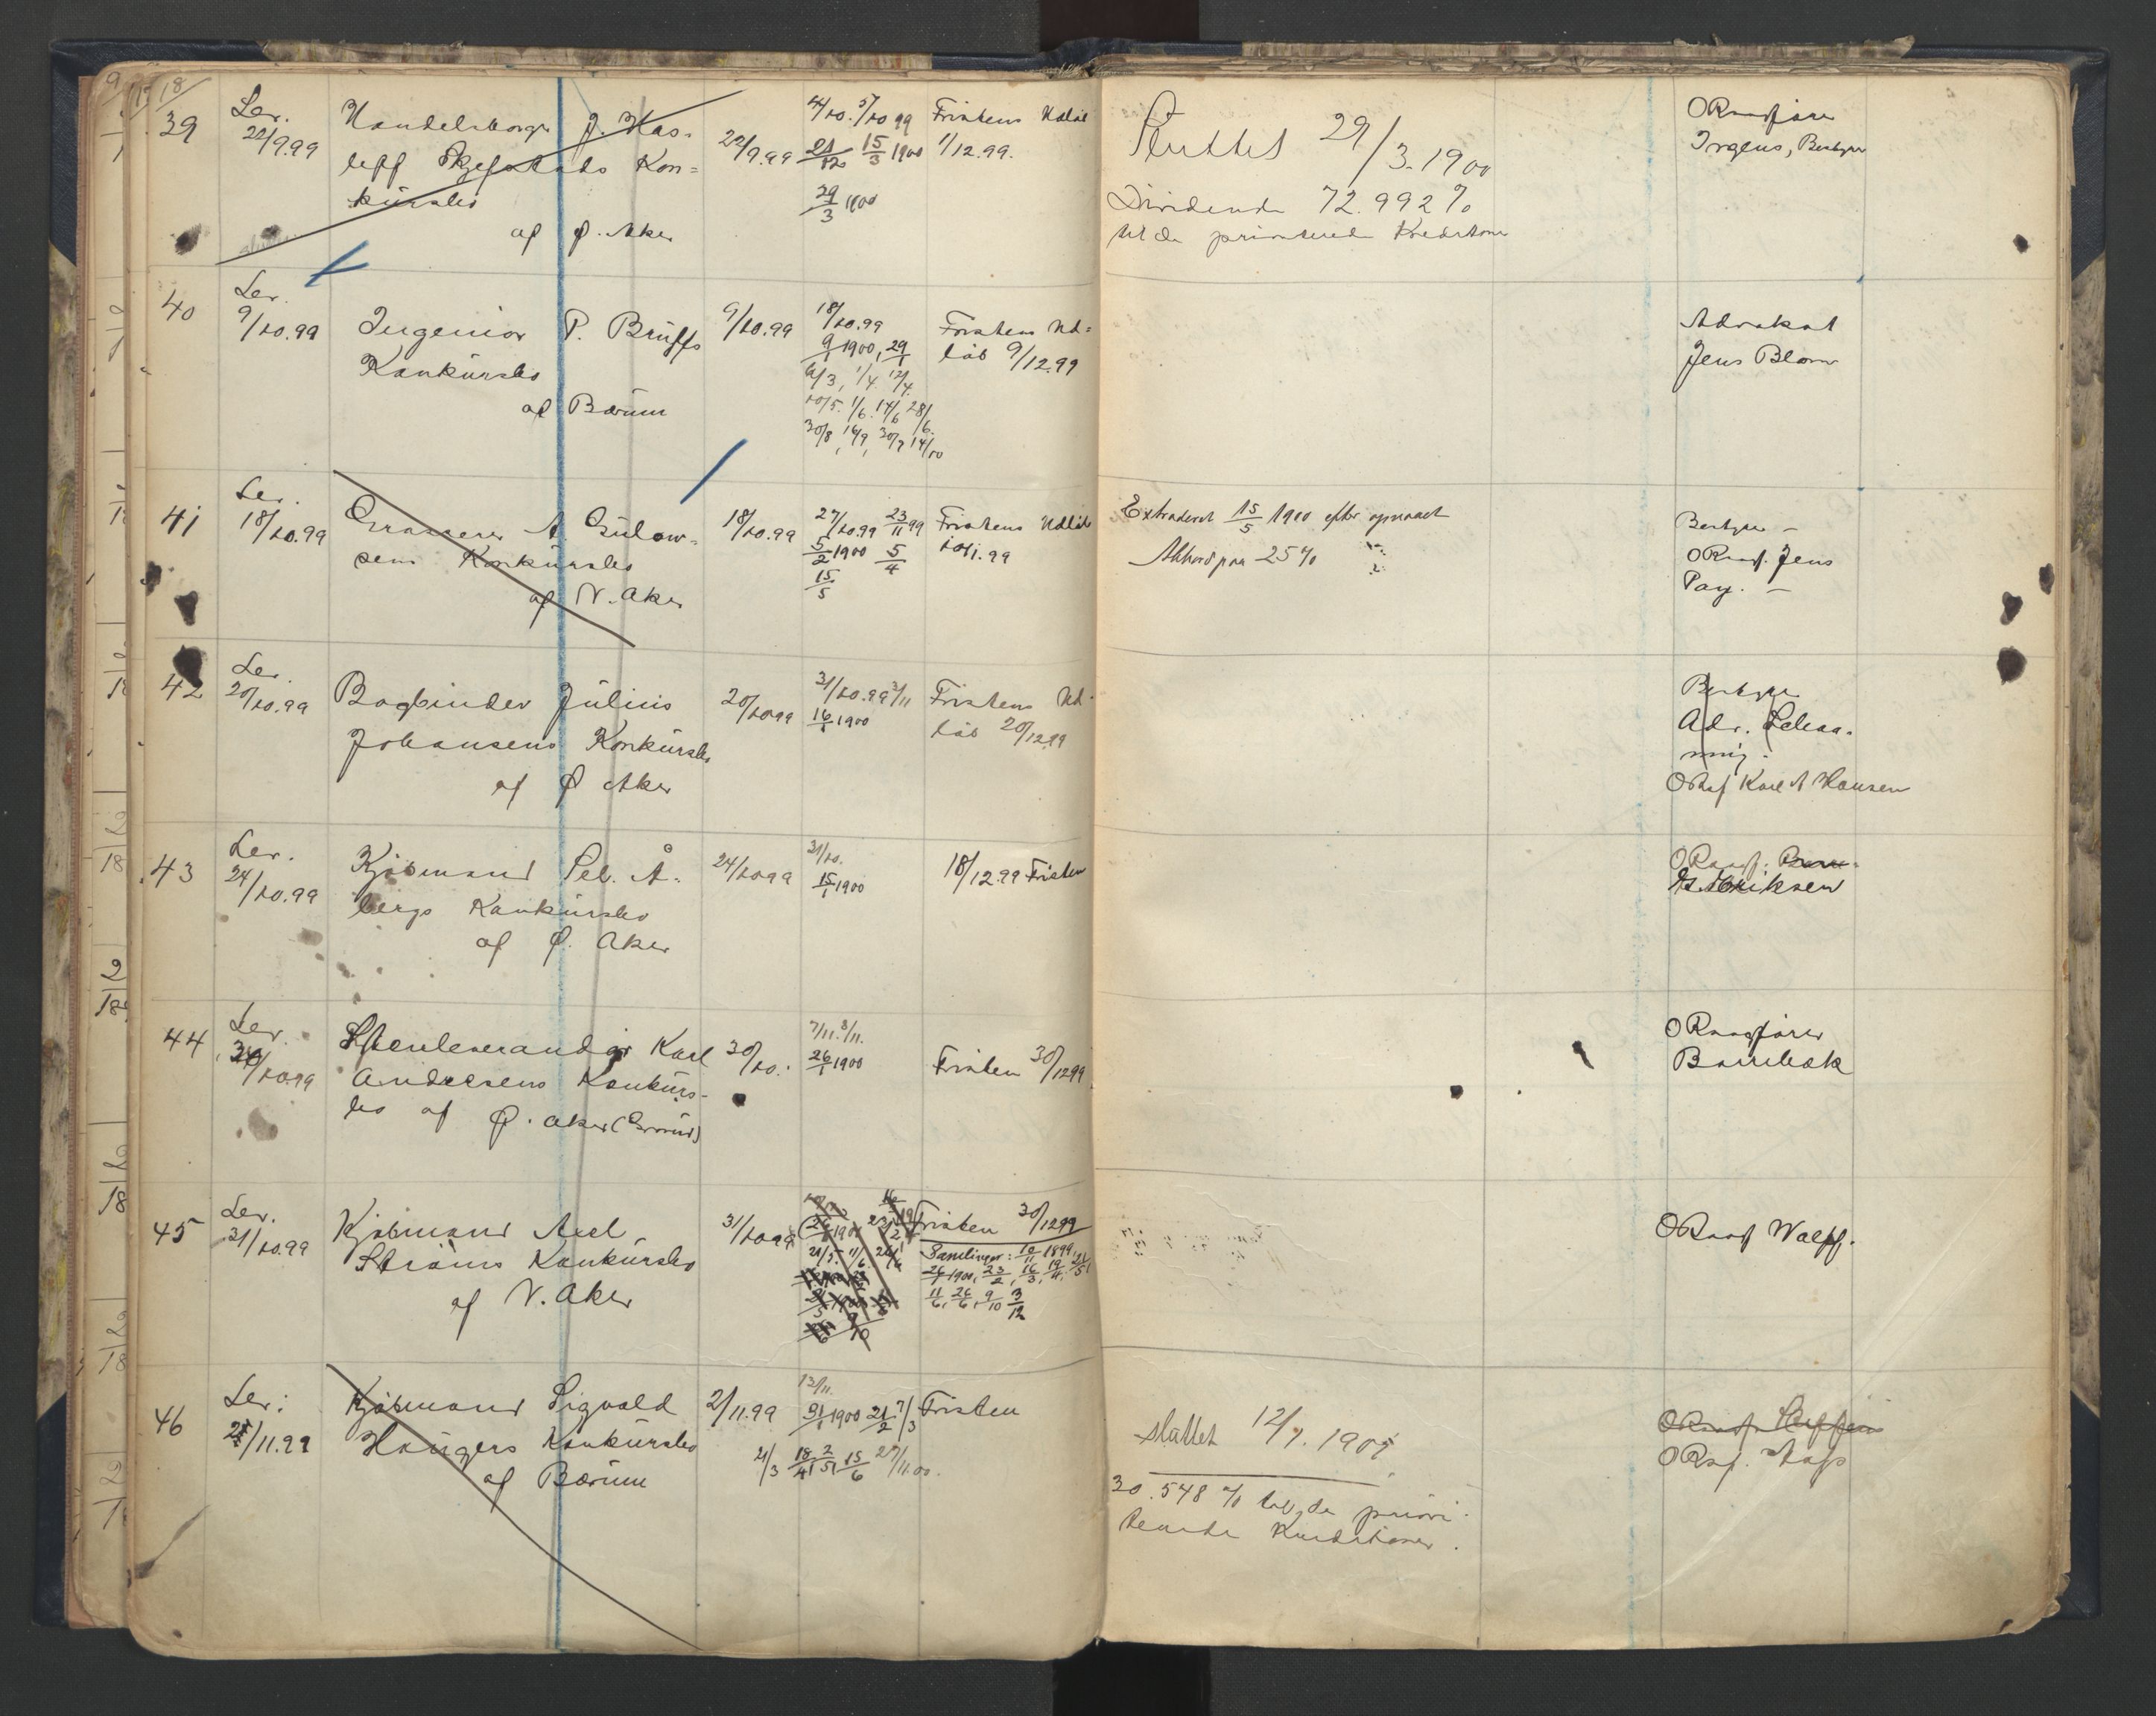 39
Ler.
22/9.99
Handelsborger J. Has-
leff Skjefstads Kon=
kürsbo
af Ø. Aker
22/9.99
4/10. 5/10 99
21/12 15/3 1900
29/3 1900
Fristens Udløb
1/12.99.
Sluttet 29/3.1900
Dividende 72.992%
til de prioriterede Kreditorer
ORsagfører
Irgens, Bestyrer
40
Ler.
9/10.99
Ingeniør P. Brüffs
Konkürsbo
af Bærüm
9/10.99
18/10.99
9/1 1900, 29/1
6/3, 1/4 12/4.
10/5. 1/6. 14/6 28/6.
30/8, 14/9, 30/9 14/10
Fristens Ud=
løb 9/12.99
Advokat
Jens Blom
41
Ler.
18/10.99
Grosserer A. Gülow-
sens Konkürsbo
af V. Aker
18/10.99
27/10.99 23/11 99
5/2 1900 5/4
15/5
Fristens Udløb
Extraderet 15/5 1900 efter opnaaet
Akkord paa 25%
Bestyrer -
ORsagf. Jens
Pay. -
42
Ler.
20/10.99
Bogbinder Jülius
Johansens Konkürsbo
af Ø Aker
20/1099
31/10.99 3/11
16/1 1900
Fristens Ud-
løb 20/12.99
Bestyrer
Adv. Schaa-
ning.
ORsf Karl A Hansen
43
Ler.
24/10.99
Kjøbmand Seb. Å-
bergs Konkürsbo
af Ø. Aker
24/1099
31/10.
15/1 1900
18/12.99 Fristen
ORsagf.
44
Ler.
30/1099
Stenleverandør Karl
Andersens Konkürs-
bo af Ø. Aker (Grorüd)
30/10.
7/11. 8/11.
26/1 1900
Fristen 30/1299
ORsagfører
Bambak
45
Ler.
31/10.99
Kjøbmand Axel
Strøms Konkürsbo
af V. Aker
31/1099
Fristen 30/1299
Samlinger: 10/11 1899,
26/1 1900, 23/2, 16/3, 19/4, 21/5,
11/6, 26/6, 9/10 3/12
ORsagf Wolff.
46
Ler:
2/11.99
Kjøbmand Sigvald
Haügers Konkürsbo
af Bærüm
2/11.99
13/11.
31/1 1900 21/2 7/3
21/3 18/4 2/5 15/6 27/11.00.
Fristen
sluttet
30.548 % til de priori-
terede Kreditorer.
ORsf.